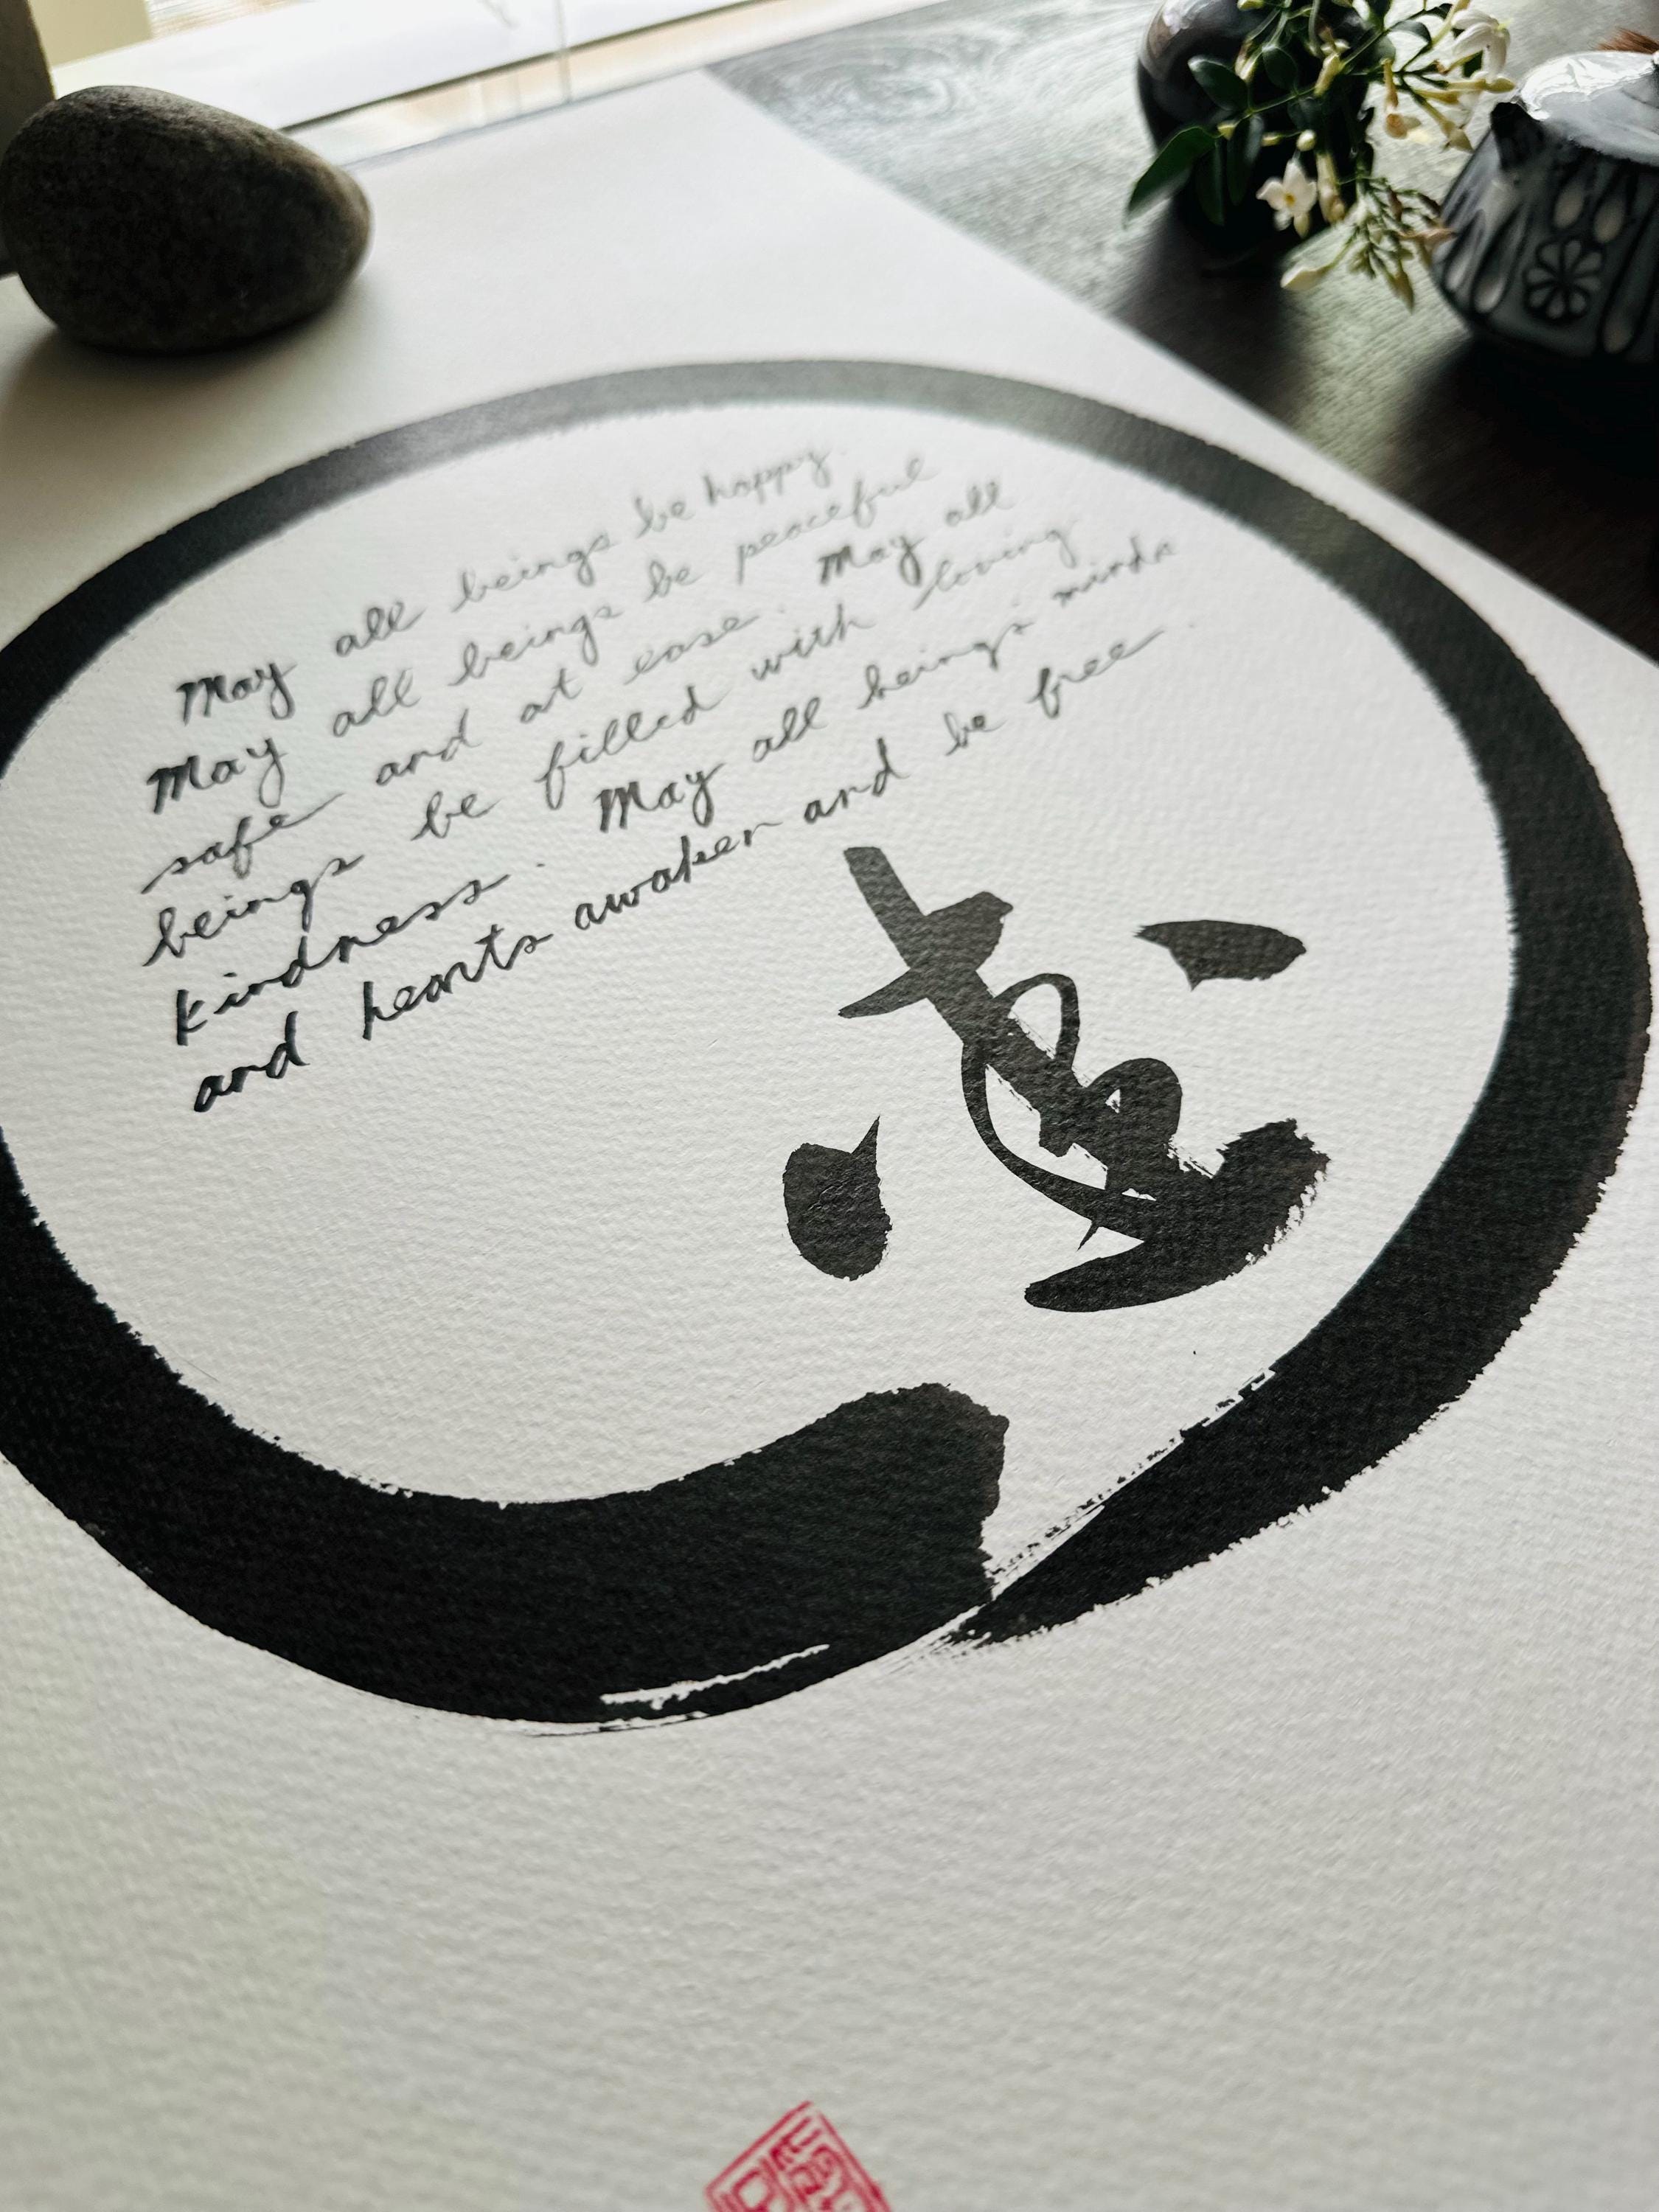 May all beings be happy.
May all beings be peaceful
safe and at ease. May all
beings be filled with loving
kindness. May all beings' minds
and hearts awaken and be free.